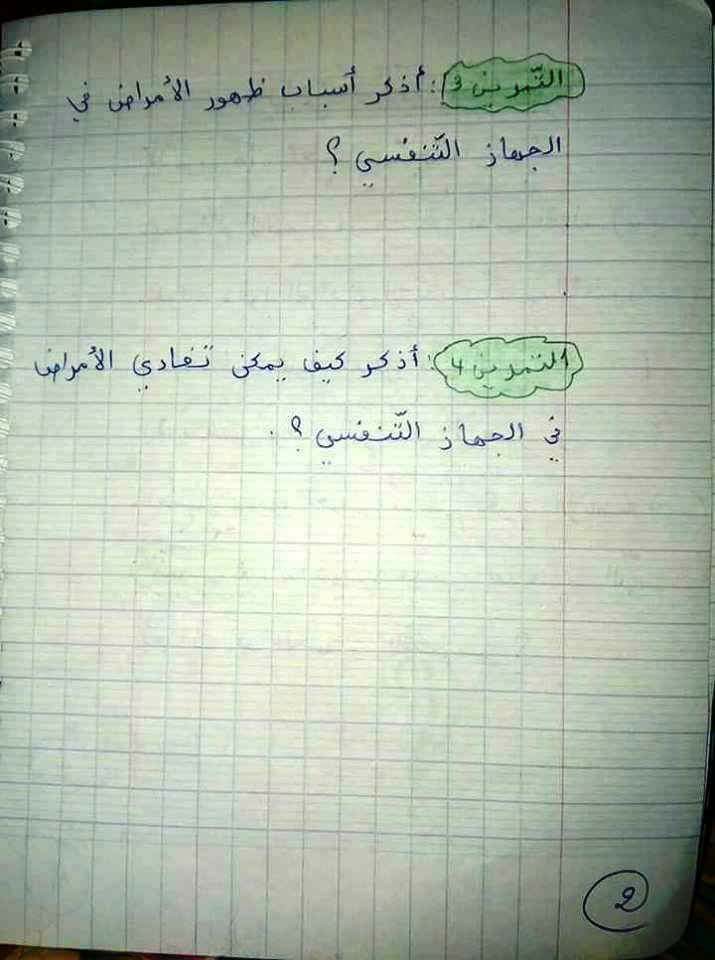 التّمرين 3: أذكر أسباب ظهور الأمراض في
الجهاز التّنفسي؟
التمرين 4: أذكر كيف يمكن تفادي الأمراض
في الجهاز التّنفسي؟.
2